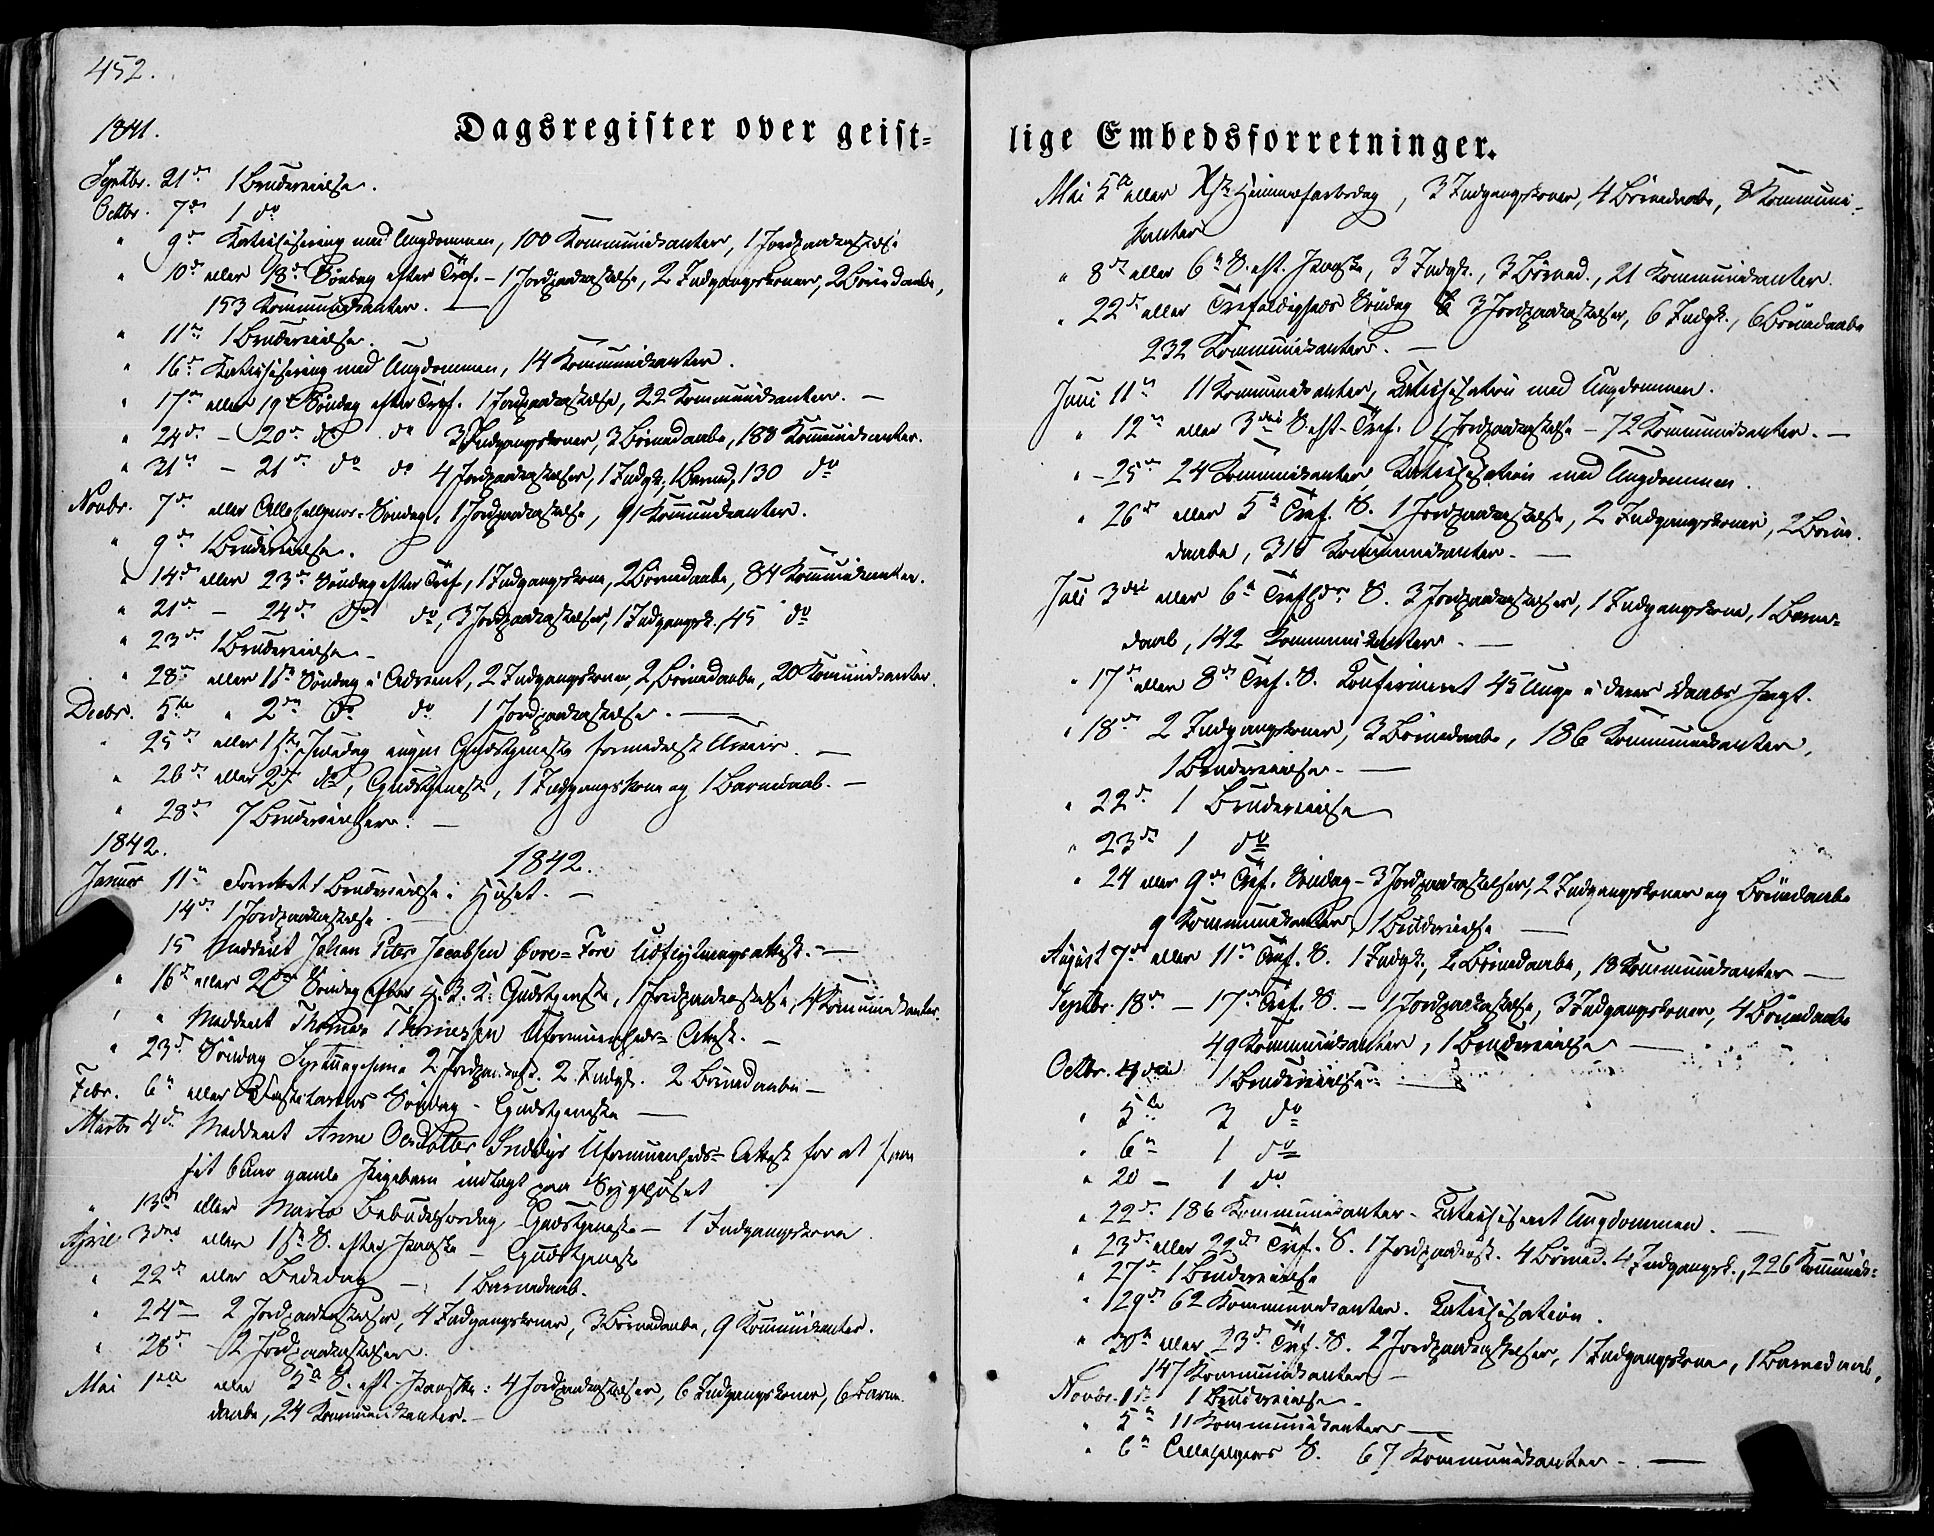 452.
Dagsregister over geist-
1841.
Septbr. 21de 1 Brudevielse.
Octbr. 7de 1 do
" 9de Katechisering med Ungdommen, 100 Kommunikanter, 1 Jordpaakastelse
" 10de eller 18de Søndag efter Tref. - 1 Jordpaakastelse, 2 Indgangskoner, 2 Børnedaabe,
153 Kommunikanter. —
" 11te 1 Brudevielse.
" 16de Katechisering med Ungdommen, 14 Kommunikanter.
" 17de eller 19de Søndag efter Tref. 1 Jordpaakastelse, 22 Kommunikanter. —
" 24de - 20de do do 3 Indgangskoner, 3 Børnedaabe, 188 Kommunikanter.
" 31te - 21de do do 4 Jordpaakastelser, 1 Indgk., 1 Barned., 130 do
Novbr. 7de eller Allehelgens-Søndag, 1 Jordpaakastelse, 91 Kommunikanter.
" 9de 1 Brudevielse.
" 14de eller 23de Søndag efter Tref., 1 Indgangskone, 2 Børnedaabe, 84 Kommunikanter.
" 21de - 24de do do, 3 Jordpaakastelser, 1 Indgangsk., 45 do
" 23de 1 Brudevielse -
" 28de eller 1ste Søndag i Advent, 2 Indgangskoner, 2 Børnedaabe, 20 Kommunikanter.
Decbr. 5te " 2den do do 1 Jordpaakastelse. —
" 25de eller 1ste Juledag ingen Gudstjeneste formedelst Uveir. —
" 26de eller 2den do, Gudstjeneste, 1 Indgangskone og 1 Barnedaab. —
" 28de 7 Brudevielser. —
1842. 1842.
Januar 11te Forrettet 1 Brudevielse i Huset. —
14de 1 Jordpaakastelse.
15 Meddeelt Johan Peter Jacobsen Øvre-Fore Udflytningsattest. —
" 16de eller 2den Søndag efter H. 3 K: Gudstjeneste, 1 Jordpaakastelse, 4 Kommunikanter.
" " Meddeelt Thomas Thomessen Uformuenheds-Attest. —
" 23de Søndag Septuagesima 2 Jordpaakast. 2 Indgk. 2 Børnedaabe —
Febr. 6te eller Fastelavns Søndag - Gudstjeneste —
Marts 4de Meddeelt Anne Uformuenheds-Attest for at faae
sit 6 Aar gamle Pigebarn indlagt paa Sygehuset
" 13de eller Maria Bebudelsesdag, Gudstjeneste — 1 Indgangskone.
April 3die eller 1ste S. efter Paaske — Gudstjeneste
" 22de eller Bededag — 1 Barnedaab.
" 24de — 2 Jordpaakastelser, 4 Indgangskoner, 3 Børnedaabe, 9 Kommunikanter.
" 28de - 2 Jordpaakastelser.
Mai 1ste eller 5te S. eft. Paaske: 4 Jordpaakastelser, 6 Indgangskoner, 6 Barne-
daabe, 24 Kommunikanter. -
lige Embedsforretninger.
Mai 5te eller Xsti Himmelfartsdag, 3 Indgangskoner, 4 Børnedaabe, 8 Kommuni-
kanter
" 8de eller 6te S. eft. Paaske, 3 Indgk., 3 Børned., 21 Kommunikanter.
" 22de eller Trefoldigheds Søndag 3 Jordpaakastelser, 6 Indgk., 6 Børnedaabe
232 Kommunikanter. —
Juni 11te 11 Kommunikanter, Katechisation med Ungdommen.
" 12te eller 3die S. eft. Tref. 1 Jordpaakastelse - 72 Kommunikanter. —
" - 25de 24 Kommunikanter Katechisation med Ungdommen.
" 26de eller 5te Tref. S. 1 Jordpaakastelse, 2 Indgangskoner, 2 Børne-
daabe, 316 Kommunikanter. —
Juli 3die eller 6te Trefhds. S. 3 Jordpaakastelser, 1 Indgangskone, 1 Barne-
daab, 142 Kommunikanter. —
" 17de eller 8de Tref. S. Konfirmeret 45 Unge i deres Daabs Pagt.
" 18de 2 Indgangskoner, 3 Børnedaabe, 186 Kommunikanter,
1 Brudevielse. —
" 22de 1 Brudevielse
" 23de 1 do
" 24 eller 9de Tref. Søndag - 3 Jordpaakastelser, 2 Indgangskoner og Børnedaabe
9 Kommunikanter, 1 Brudevielse —
August 7de eller 11te Tref. S. 1 Indgk., 2 Børnedaabe, 18 Kommunikanter —
Septbr. 18de — 17de Tref. S. — 1 Jordpaakastelse, 3 Indgangskoner, 4 Børnedaabe
49 Kommunikanter, 1 Brudevielse —
Octbr. 4de 1 Brudevielse —
" 5te 3 do
" 6te 1 do
" 20 — 1 do
" 22de 186 Kommunikanter - Katechiseret Ungdommen. —
" 23de eller 22de Tref. S. 1 Jordpaakast. 4 Børned. 4 Indgangsk., 226 Kommunik-
" 27de 1 Brudevielse
" 29de 62 Kommunikanter. Katechisation.
" 30te eller 23de Tref. S. 2 Jordpaakastelser, 1 Indgangskone, 1 Barnedaab,
147 Kommunikanter —
Novbr. 1ste 1 Brudevielse -
" 5te 11 Kommunikanter —
" 6te Allehelgens S. 67 Kommunikanter - —